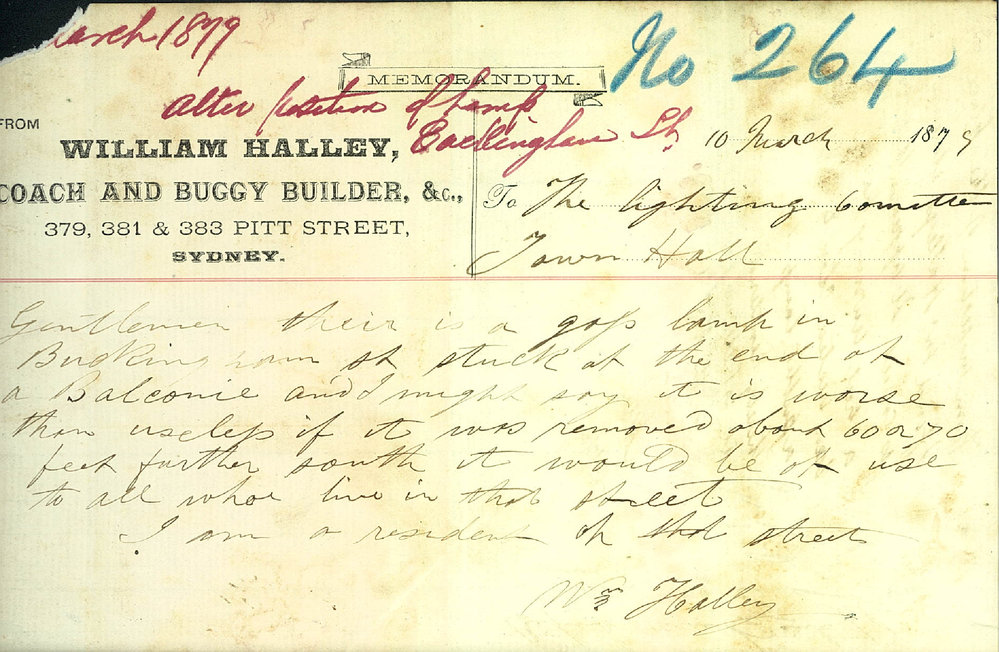 arch 1879
No 264
MEMORANDUM.
Alter position of Lamp
Buckingham St.
FROM
WILLIAM HALLEY,
COACH AND BUGGY BUILDER, &c.,
379, 381 & 383 PITT STREET,
SYDNEY.
10 March 1879
To The lighting Comittee
Town Hall
Gentlemen their is a gass lamp in
Buckingham st stuck at the end of
a Balconie and I might say it is worse
than useless if it was removed about 60 or 70
feet further south it would be of use
to all whoe live in that street
I am a resident of that street
Wm Halley